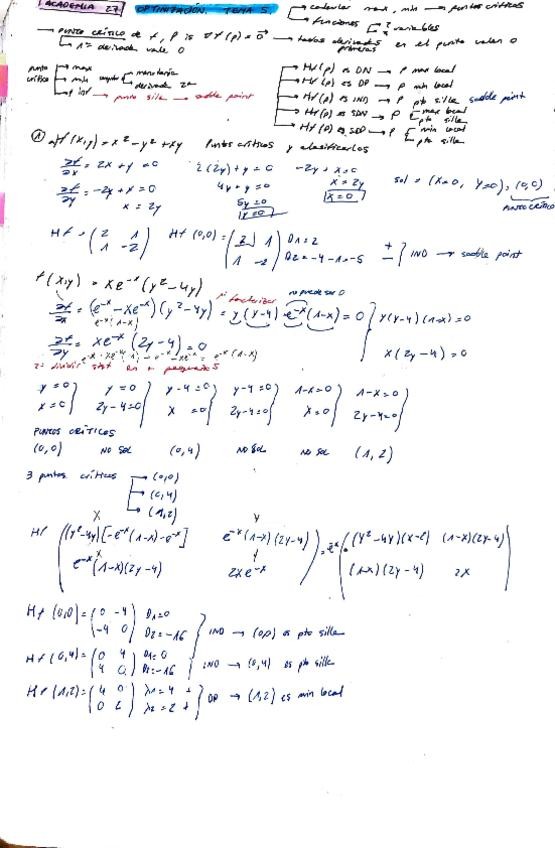 ACADEMIA 27 OPTIMIZACIÓN. TEMA 5. calcular max, min → puntos críticos
funciones 2 variables
→ punto crítico de f, P is ∇f(p) = 0 → todas derivadas primeras en el punto valen 0
1ª derivada vale 0
punto crítico
max
min
derivada 2ª
P inf → punto silla → saddle point
Hf(p) es DN → P max local
Hf(p) es DP → P min local
Hf(p) es IND → P pto silla saddle point
Hf(p) es SDN → P max local
pto silla
Hf(p) es SDP → P min local
pto silla
① f(x,y) = x² - y² + xy Puntos críticos y clasificarlos
∂f/∂x = 2x + y = 0 2(2y) + y = 0 -2y + x = 0
∂f/∂y = -2y + x = 0 4y + y = 0 x = 2y sol = (x=0, y=0), (0,0)
x = 2y 5y = 0 x = 0 PUNTO CRÍTICO
y = 0
Hf = (2 1
1 -2) Hf(0,0) = (2 1
1 -2) D1 = 2 +
D2 = -4-1 = -5 - } IND → saddle point
f(x,y) = xe⁻ˣ(y² - 4y)
factorizar no puede ser 0
∂f/∂x = (e⁻ˣ - xe⁻ˣ)(y² - 4y) = y(y-4) e⁻ˣ(1-x) = 0 y(y-4)(1-x) = 0
e⁻ˣ(1-x)
∂f/∂y = xe⁻ˣ(2y-4) = 0 x(2y-4) = 0
y = 0 y = 0 y-4 = 0 y-4 = 0 1-x = 0 1-x = 0
x = 0 2y-4 = 0 x = 0 2y-4 = 0 x = 0 2y-4 = 0
PUNTOS CRÍTICOS
(0,0) NO SOL (0,4) NO SOL NO SOL (1,2)
3 puntos críticos (0,0)
(0,4)
(1,2)
Hf ((y²-4y)[-e⁻ˣ(1-x)-e⁻ˣ] e⁻ˣ(1-x)(2y-4)
e⁻ˣ(1-x)(2y-4) 2xe⁻ˣ) = e⁻ˣ·((y²-4y)(x-2) (1-x)(2y-4)
(1-x)(2y-4) 2x)
Hf(0,0) = (0 -4
-4 0) D1 = 0
D2 = -16 } IND → (0,0) es pto silla
Hf(0,4) = (0 4
4 0) D1 = 0
D2 = -16 } IND → (0,4) es pto silla
Hf(1,2) = (4 0
0 2) λ1 = 4 +
λ2 = 2 + } DP → (1,2) es min local